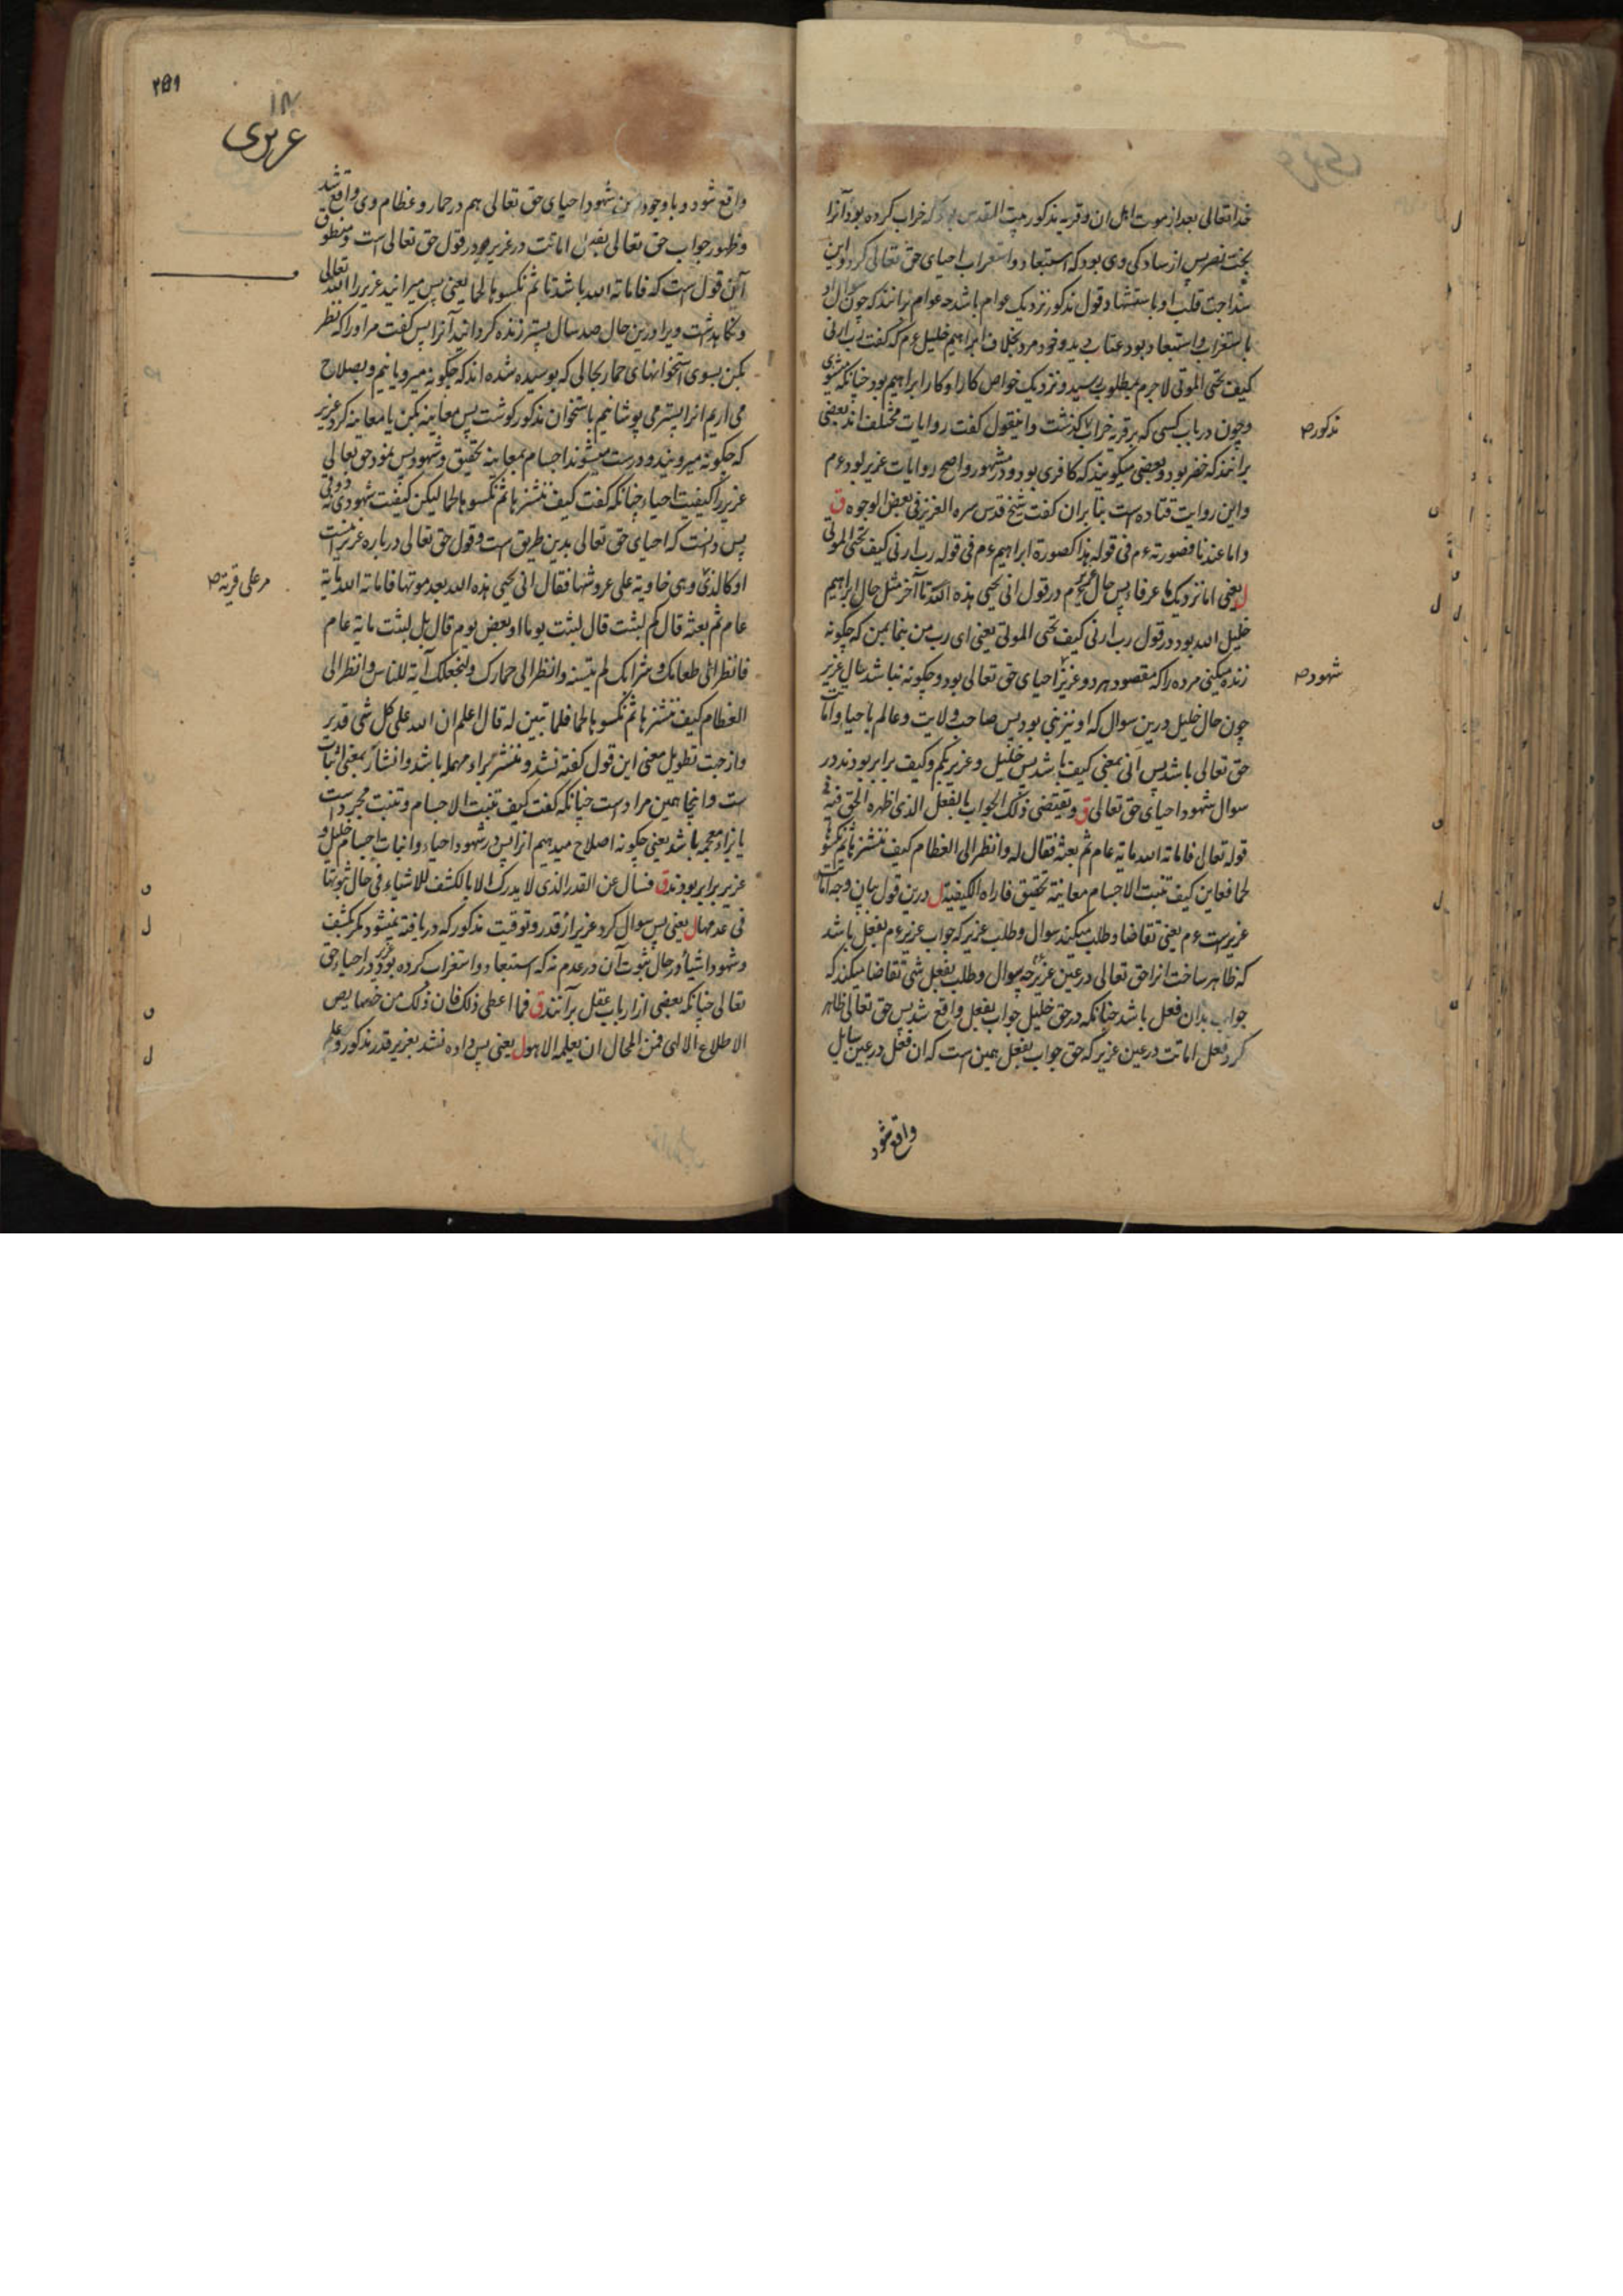 خداتعالی بعد از موت اهل ان و قریه مذکور بیت المقدس بود که خراب کرده بود آنرا
بخت نصر پس از سادکی وی بود که استبعاد و استغراب احیای حق تعالی کرد و این
سذاجت قلب او باستشهاد قول مذکور نزدیک عوام باشد چه عوام برانند که چون سوال او
باستغراب و استبعاد بود عتاب بدید و خود مرد بخلاف ابراهیم خلیل عم که گفت رب ارنی
کیف تحی الموتی لاجرم بمطلوب رسید و نزدیک خواص کار او کار ابراهیم بود چنانکه
و چون در باب کسی که بر قریه خراب گذشت و اینقول گفت روایات مختلف اند بعضی
برانند که خضر بود و بعضی میگویند که کافری بود و مشهور و اصح روایات عزیر بود عم
و این روایت قتاده است بنا بران گفت شیخ قدس سره العزیز فی بعض الوجوه ق
و اما عندنا فصورته عم فی قوله هذا کصورة ابراهیم عم فی قوله رب ارنی کیف تحی الموتی
ل یعنی اما نزدیک ما عرفاء پس حال عزیر عم در قول انی یحیی هذه الله تا آخر مثل حال ابراهیم
خلیل الله بود در قول رب ارنی کیف تحی الموتی یعنی ای رب من بنما بمن که چگونه
زنده میکنی مرده را که مقصود هر دو عزیز احیای حق تعالی بود و چگونه نباشد سال عزیر
چون حال خلیل درین سوال که او نیز نبی بود پس صاحب ولایت و عالم باحیا و امات
حق تعالی باشد پس انی بمعنی کیف باشد پس خلیل و عزیر بکم و کیف برابر بودند در
سوال شهود احیای حق تعالی ق و یقتضی ذلک الجواب بالفعل الذی اظهره الحق فیه فی
قوله تعالی فاماته الله مایة عام ثم بعثه فقال له و انظر الی العظام کیف ننشزها ثم نکسوها
لحما فعاین کیف تنبت الاجسام معاینة تحقیق فاراه الکیفیة ل درین قول بیان وجه امات
عزیر است عم یعنی تقاضا و طلب میکند سوال و طلب عزیر که جواب عزیر عم بفعل باشد
که ظاهر ساخت انرا حق تعالی در عین عزیر چه سوال و طلب بفعل شی تقاضا میکند که
جواب بدان فعل باشد چنانکه در حق خلیل جواب بفعل واقع شد پس حق تعالی ظاهر
کرد فعل امات در عین عزیر که حق جواب بفعل همین است که ان فعل در عین سایل
واقع شود
مذکور
شهود
۲۵۹
۱۴
عزیری
واقع شود و باوجود این شهود احیای حق تعالی هم در حمار و عظام وی واقع شد
و ظهور جواب حق تعالی بفعل امات در عزیر در قول حق تعالی است و منطوق
آن قول است که فاماته الله باشد تا ثم نکسوها لحما یعنی پس میرانید عزیر را الله تعالی
و نگاهداشت ویرا درین حال صد سال پستر زنده کردانید آنرا پس گفت مر او را که نظر
بکن بسوی استخوانهای حمار بحالی که بوسیده شده اند که چگونه میرویانیم و بصلاح
می اریم انرا پستر می پوشانیم باستخوان مذکور گوشت پس معاینه بکن یا معاینه کرد عزیر
که چگونه میرویند و درست میشوند اجسام بمعاینه تحقیق و شهود پس نمود حق تعالی
عزیر را کیفیت احیاء چنانکه گفت کیف ننشزها ثم نکسوها لحما لیکن کیفیت شهودی نه ذوقی
پس دانست که احیای حق تعالی بدین طریق است و قول حق تعالی در باره عزیر اینست
او کالذی و هی خاویة علی عروشها فقال انی یحیی هذه الله بعد موتها فاماته الله مایة
عام ثم بعثه قال کم لبثت قال لبثت یوما او بعض یوم قال بل لبثت مایة عام
فانظر الی طعامک و شرابک لم یتسنه و انظر الی حمارک و لنجعلک آیة للناس و انظر الی
العظام کیف ننشزها ثم نکسوها لحما فلما تبین له قال اعلم ان الله علی کل شی قدیر
و از جهت تطویل معنی این قول گفته نشد و ننشر براء مهمله باشد و انشار بمعنی اثبات
است و اینجا همین مراد است چنانکه گفت کیف تنبت الاجسام و تنبت مجرد است
یا بزاء معجمه باشد یعنی چگونه اصلاح میدهیم انرا پس در شهود احیاء و انبات اجسام خلیل و
عزیر برابر بودند ق فسال عن القدر الذی لا یدرک الا بالکشف للاشیاء فی حال ثبوتها
فی عدمها ل یعنی پس سوال کرد عزیر از قدر و توقیت مذکور که دریافته نمیشود مگر بکشف
و شهود اشیا در حال ثبوت آن در عدم نه که استبعاد و استغراب کرده بود عزیر در احیاء حق
تعالی چنانکه بعضی از ارباب عقل برآنند ق فما اعطی ذلک فان ذلک من خصایص
الاطلاع الالهی فمن المحال ان یعلمه الا هو ل یعنی پس داده نشد بعزیر قدر مذکور و علم
مر علی قریة